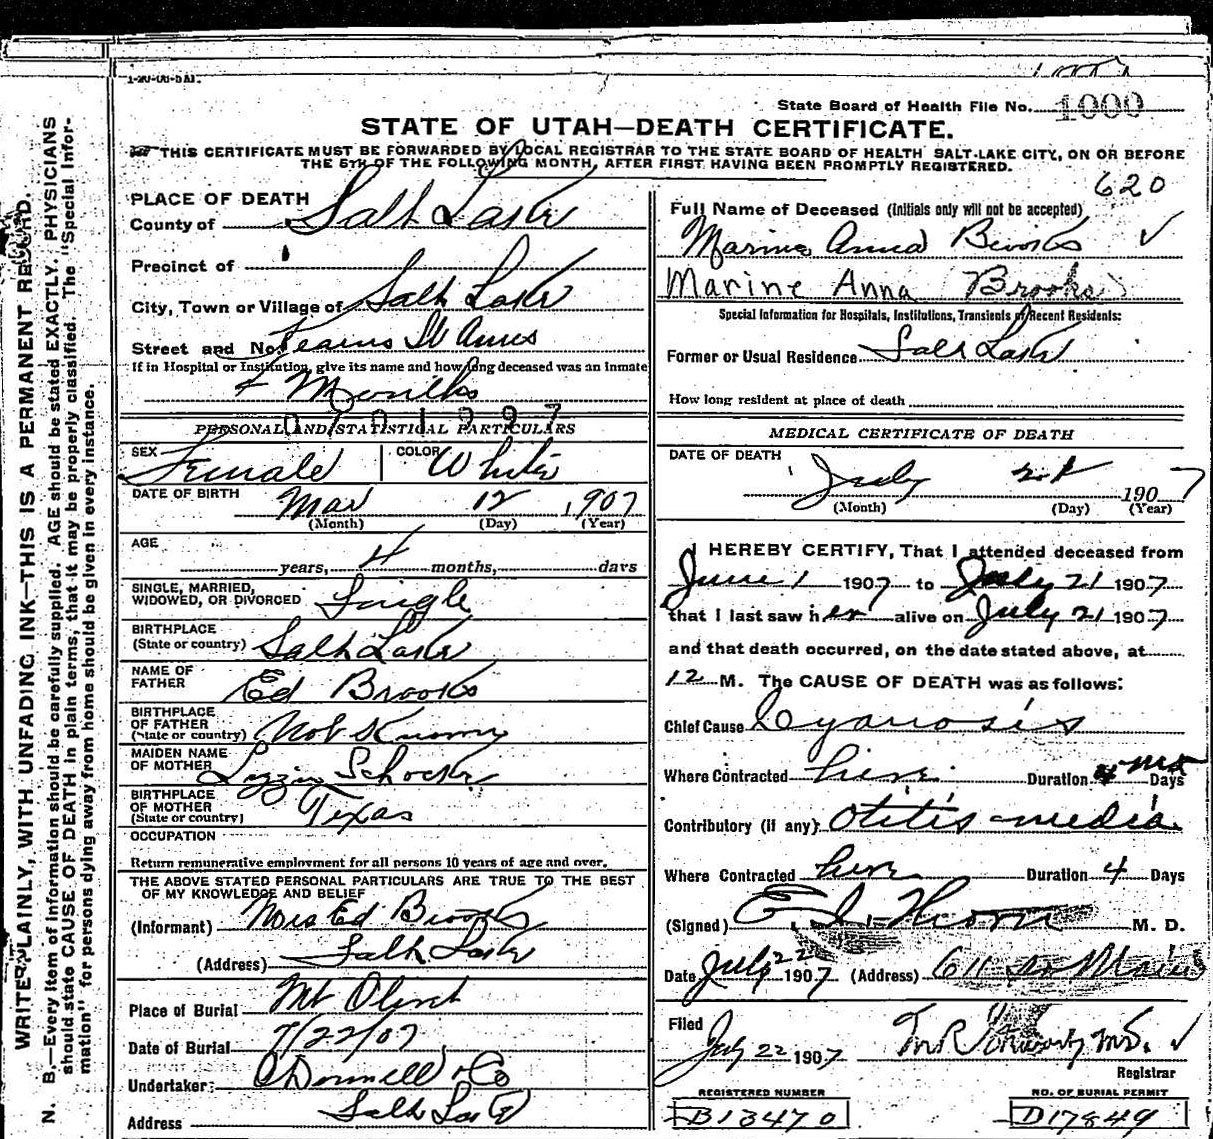 State Board of Health File No. 1000
STATE OF UTAH—DEATH CERTIFICATE.
THIS CERTIFICATE MUST BE FORWARDED BY LOCAL REGISTRAR TO THE STATE BOARD OF HEALTH SALT LAKE CITY, ON OR BEFORE
THE 5TH OF THE FOLLOWING MONTH, AFTER FIRST HAVING BEEN PROMPTLY REGISTERED.
WRITE PLAINLY, WITH UNFADING INK—THIS IS A PERMANENT RECORD.
N. B.—Every item of information should be carefully supplied. AGE should be stated EXACTLY. PHYSICIANS
should state CAUSE OF DEATH in plain terms, that it may be properly classified. The "Special Infor-
mation" for persons dying away from home should be given in every instance.
PLACE OF DEATH
County of Salt Lake
Precinct of
City, Town or Village of Salt Lake
Street and No. Kearns St Anns
If in Hospital or Institution, give its name and how long deceased was an inmate
4 Months
PERSONAL AND STATISTICAL PARTICULARS
SEX Female COLOR White
DATE OF BIRTH Mar 12 1907
(Month) (Day) (Year)
AGE
years, 4 months, days
SINGLE, MARRIED,
WIDOWED, OR DIVORCED Single
BIRTHPLACE
(State or country) Salt Lake
NAME OF
FATHER Ed Brooks
BIRTHPLACE
OF FATHER
(State or country) Not Known
MAIDEN NAME
OF MOTHER Lizzie
BIRTHPLACE
OF MOTHER
(State or country) Texas
OCCUPATION
Return remunerative employment for all persons 10 years of age and over.
THE ABOVE STATED PERSONAL PARTICULARS ARE TRUE TO THE BEST
OF MY KNOWLEDGE AND BELIEF
(Informant) Mrs Ed Brooks
(Address) Salt Lake
Place of Burial Mt Olivet
Date of Burial 7/22/07
Undertaker: O'Donnell & Co
Address Salt Lake
620
Full Name of Deceased (Initials only will not be accepted)
Marine Anna Brooks
Marine Anna Brooks
Special Information for Hospitals, Institutions, Transients or Recent Residents:
Former or Usual Residence Salt Lake
How long resident at place of death
MEDICAL CERTIFICATE OF DEATH
DATE OF DEATH
July 21 1907
(Month) (Day) (Year)
I HEREBY CERTIFY, That I attended deceased from
June 1 1907 to July 21 1907
that I last saw her alive on July 21 1907
and that death occurred, on the date stated above, at
12 M. The CAUSE OF DEATH was as follows:
Chief Cause Cyanosis
Where Contracted here Duration 4 mos Days
Contributory (if any) Otitis media
Where Contracted here Duration 4 Days
(Signed) M. D.
Date July 22 1907 (Address) 611 So Main
Filed
July 22 1907
Registrar
REGISTERED NUMBER
B13470
NO. OF BURIAL PERMIT
D17849